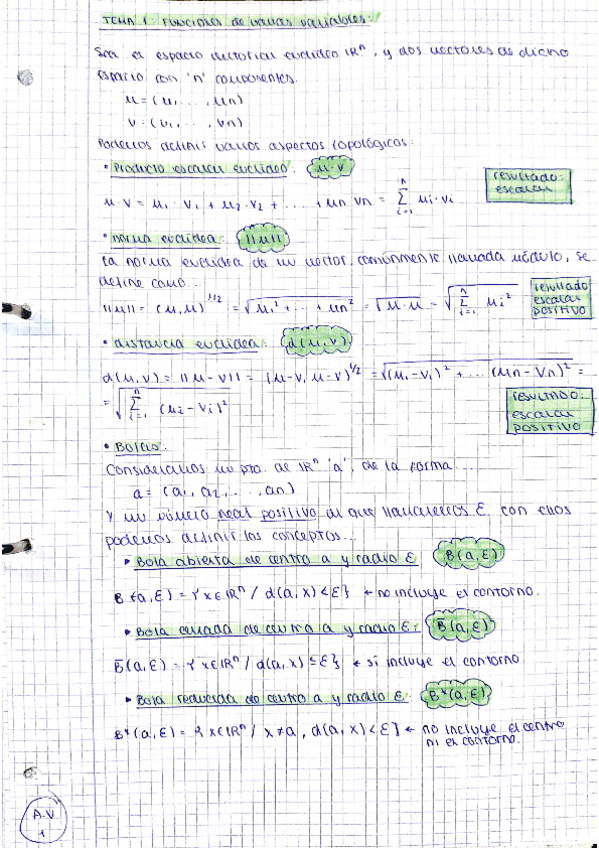 TEMA 1: Funciones de varias variables:
Sea el espacio vectorial euclídeo ℝⁿ, y dos vectores de dicho
espacio con 'n' componentes.
u = (u₁, ..., un)
v = (v₁, ..., vn)
Podemos definir varios aspectos topológicos:
• Producto escalar euclídeo: u·v
resultado: escalar
u·v = u₁·v₁ + u₂·v₂ + ... + un vn = ∑ⁿᵢ₌₁ ui·vi
• norma euclídea: ||u||
La norma euclídea de un vector, comúnmente llamada módulo, se
define como...
||u|| = (u,u)^1/2 = √(u₁² + ... + un²) = √(u·u) = √(∑ⁿᵢ₌₁ ui²)
resultado escalar positivo
• distancia euclídea: d(u,v)
d(u,v) = ||u-v|| = (u-v, u-v)^1/2 = √((u₁-v₁)² + ... (un-vn)²) =
= √(∑ⁿᵢ₌₁ (ui-vi)²)
resultado: escalar positivo
• Bolas:
Consideramos un pto. de ℝⁿ 'a', de la forma...
a = (a₁, a₂, ..., an)
Y un número real positivo al que llamaremos ε, con ellos
podemos definir los conceptos...
▸ Bola abierta de centro a y radio ε B(a,ε)
B(a,ε) = {x∈ℝⁿ / d(a,x)<ε} ← no incluye el contorno.
▸ Bola cerrada de centro a y radio ε: B̄(a,ε)
B̄(a,ε) = {x∈ℝⁿ / d(a,x)≤ε} ← sí incluye el contorno
▸ Bola reducida de centro a y radio ε B*(a,ε)
B*(a,ε) = {x∈ℝⁿ / x≠a, d(a,x)<ε} ← no incluye el centro
ni el contorno.
A.V
1